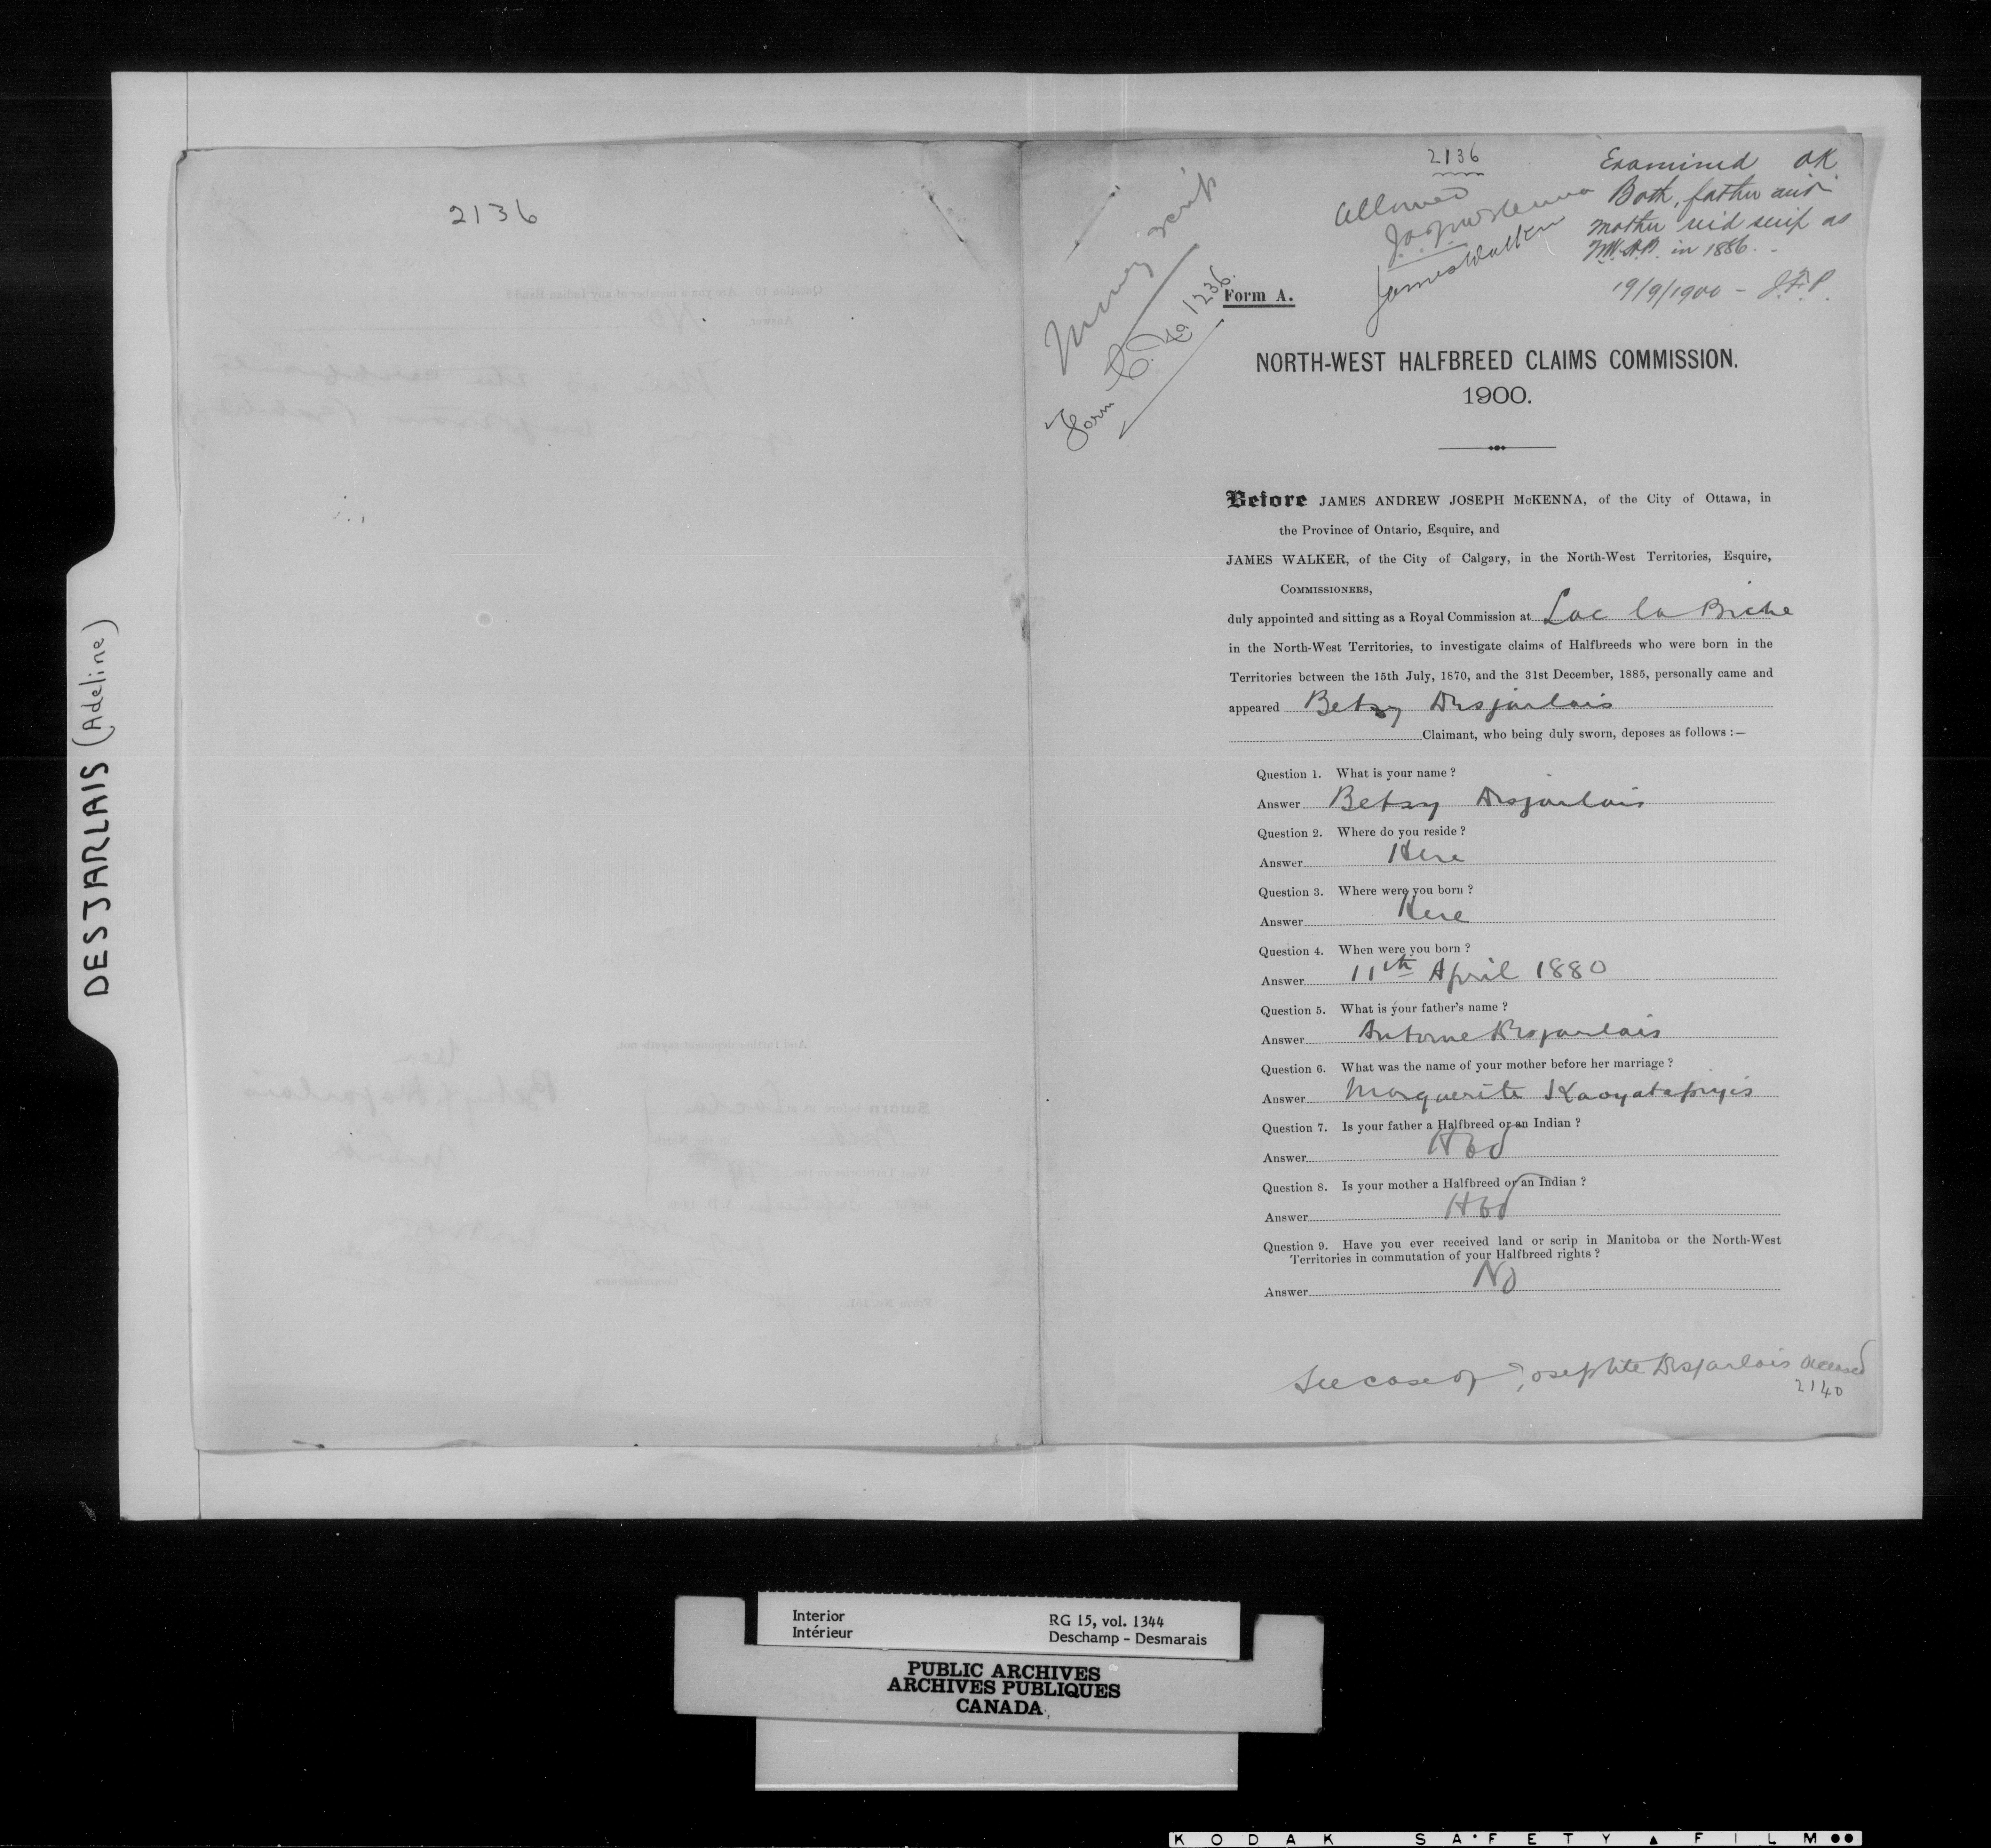 DESJARLAIS (Adeline)
2136
2136
Examined OK
Both, father and
mother rec'd scrip as
N.W.H.B. in 1886.
19/9/1900 - J.F.P.
Allowed
J.A.J. McKenna
James Walker
Money scrip
Form C. No 1236.
Form A.
NORTH-WEST HALFBREED CLAIMS COMMISSION.
1900.
Before JAMES ANDREW JOSEPH McKENNA, of the City of Ottawa, in
the Province of Ontario, Esquire, and
JAMES WALKER, of the City of Calgary, in the North-West Territories, Esquire,
COMMISSIONERS,
duly appointed and sitting as a Royal Commission at Lac la Biche
in the North-West Territories, to investigate claims of Halfbreeds who were born in the
Territories between the 15th July, 1870, and the 31st December, 1885, personally came and
appeared Betsy Desjarlais
Claimant, who being duly sworn, deposes as follows :—
Question 1. What is your name ?
Answer Betsy Desjarlais
Question 2. Where do you reside ?
Answer Here
Question 3. Where were you born ?
Answer Here
Question 4. When were you born ?
Answer 11th April 1880
Question 5. What is your father's name ?
Answer Antoine Desjarlais
Question 6. What was the name of your mother before her marriage ?
Answer Marguerite Kaoyatepiyis
Question 7. Is your father a Halfbreed or an Indian ?
Answer Hbd
Question 8. Is your mother a Halfbreed or an Indian ?
Answer Hbd
Question 9. Have you ever received land or scrip in Manitoba or the North-West
Territories in commutation of your Halfbreed rights ?
Answer No
See case of Josephte Desjarlais deceased
2140
Interior
Intérieur
RG 15, vol. 1344
Deschamp - Desmarais
PUBLIC ARCHIVES
ARCHIVES PUBLIQUES
CANADA
KODAK SAFETY FILM